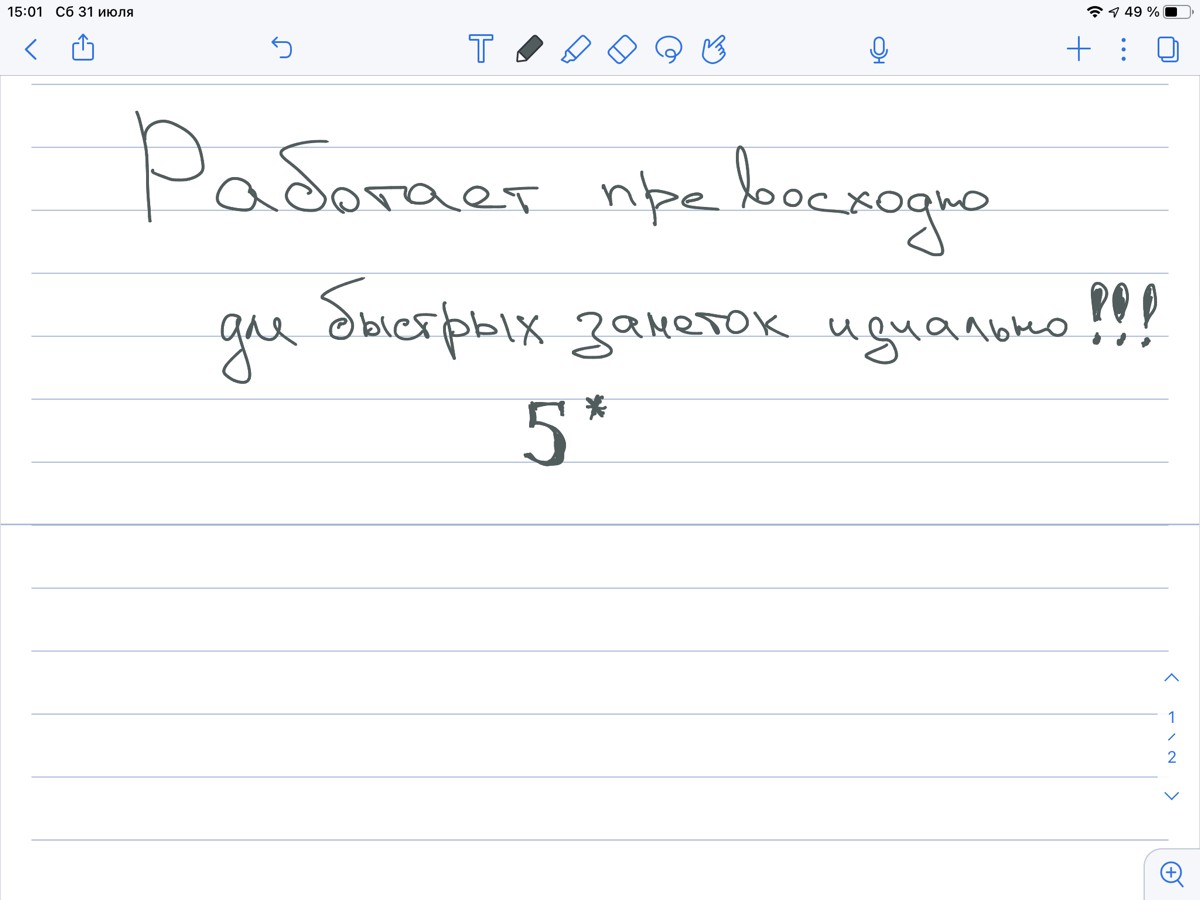 15:01 Сб 31 июля 49 %
Работает превосходно
для быстрых заметок идиально!!!
5*
1
2